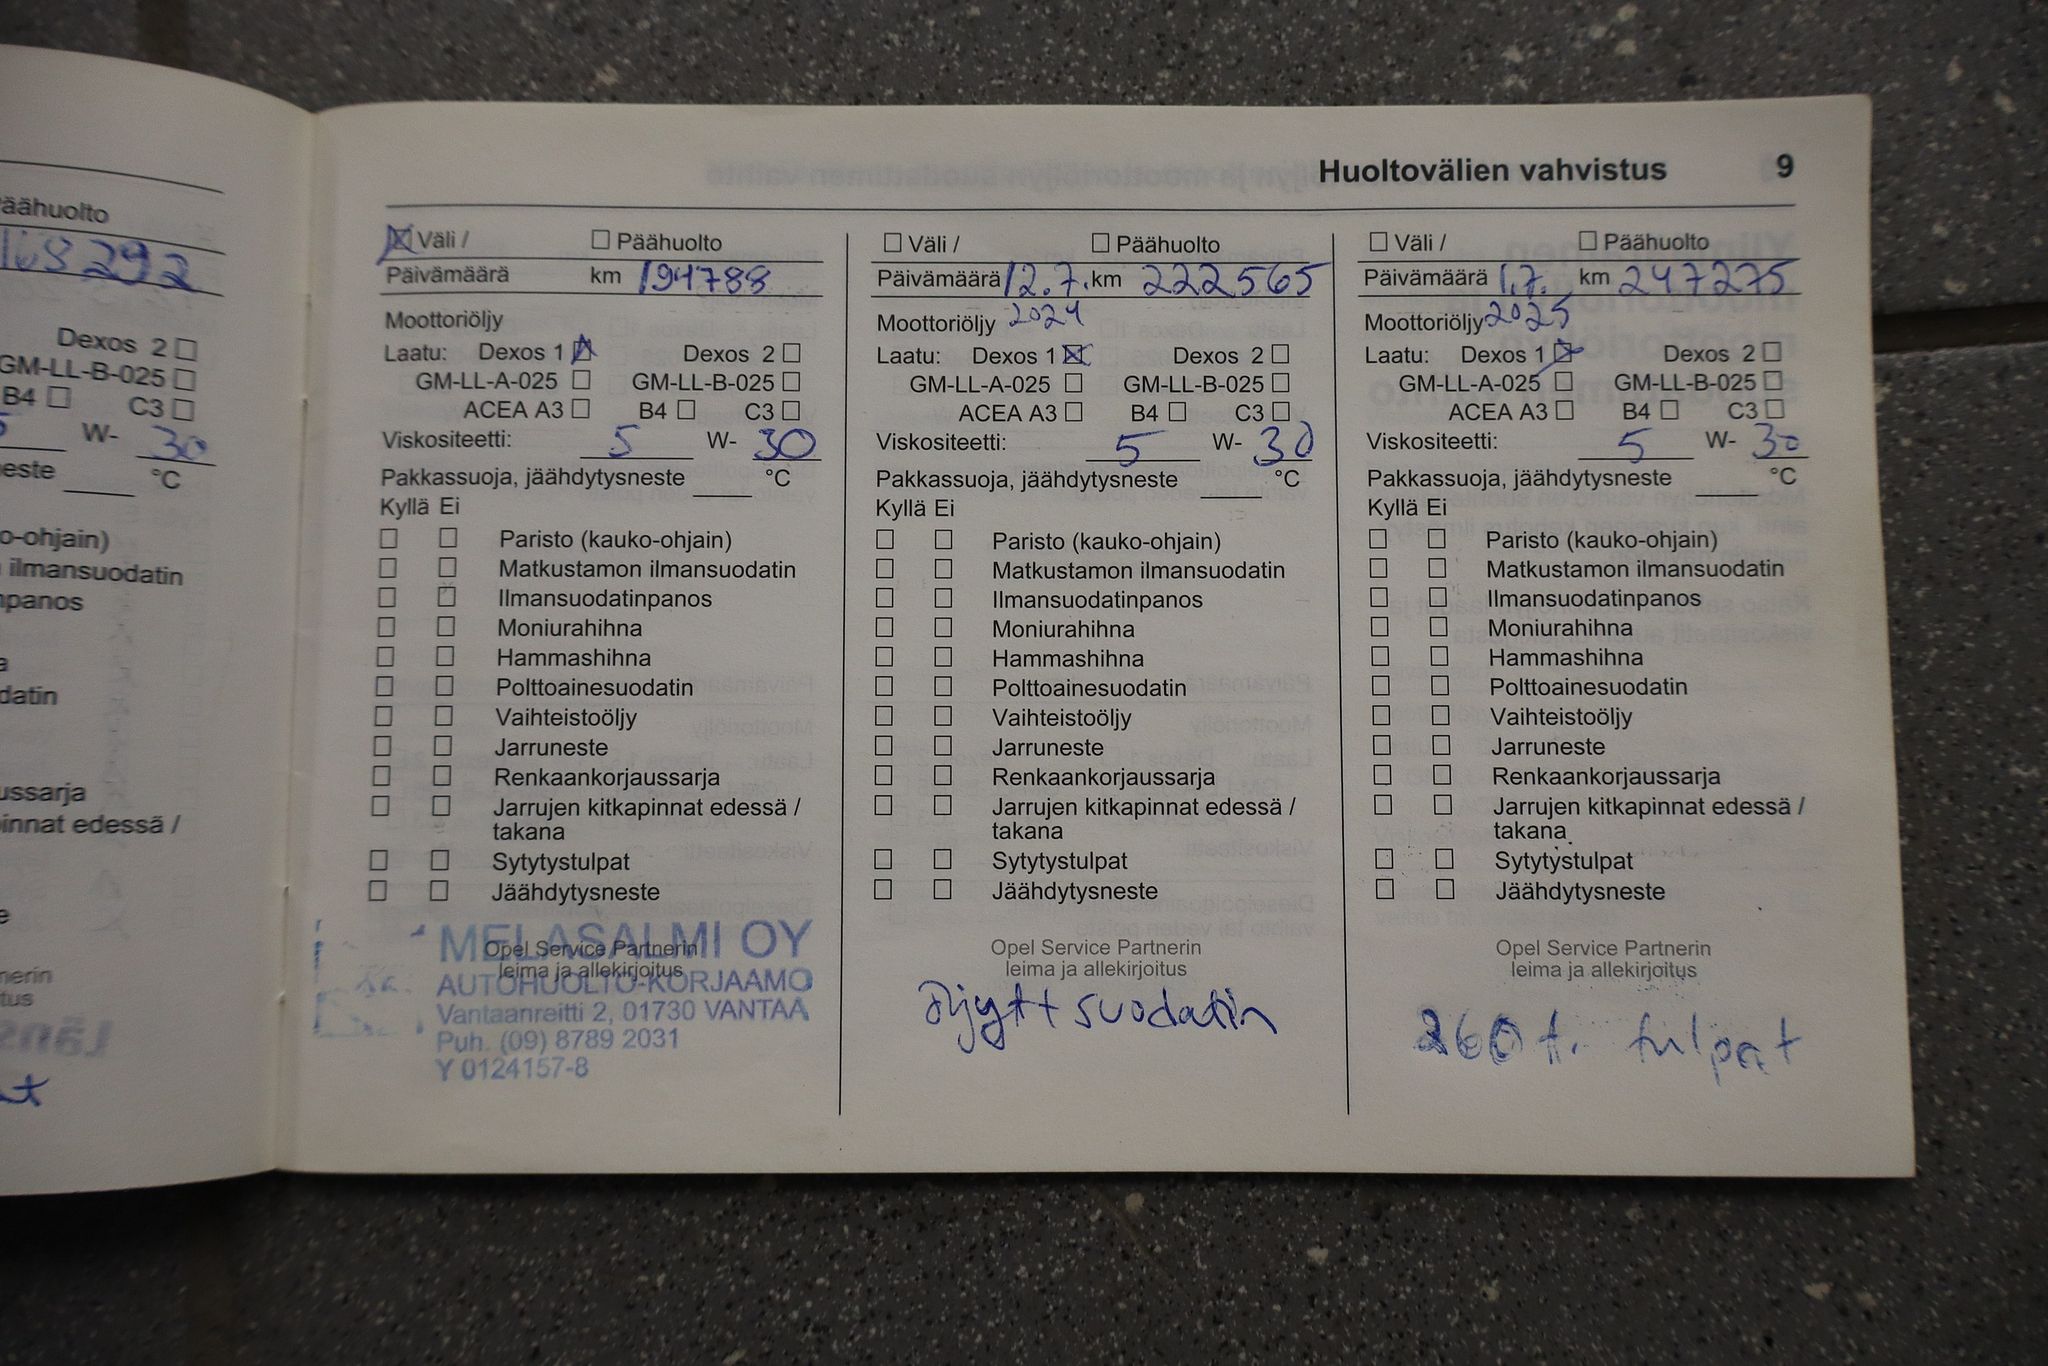 äähuolto
168292
Dexos 2
GM-LL-B-025
B4 C3
5 W- 30
neste °C
o-ohjain)
ilmansuodatin
npanos
datin
ussarja
innat edessä /
nerin
tus
Huoltovälien vahvistus 9
Väli / Päähuolto
Päivämäärä km 194788
Moottoriöljy
Laatu: Dexos 1 Dexos 2
GM-LL-A-025 GM-LL-B-025
ACEA A3 B4 C3
Viskositeetti: 5 W- 30
Pakkassuoja, jäähdytysneste °C
Kyllä Ei
Paristo (kauko-ohjain)
Matkustamon ilmansuodatin
Ilmansuodatinpanos
Moniurahihna
Hammashihna
Polttoainesuodatin
Vaihteistoöljy
Jarruneste
Renkaankorjaussarja
Jarrujen kitkapinnat edessä /
takana
Sytytystulpat
Jäähdytysneste
Opel Service Partnerin
leima ja allekirjoitus
MELASALMI OY
AUTOHUOLTO-KORJAAMO
Vantaanreitti 2, 01730 VANTAA
Puh. (09) 8789 2031
Y 0124157-8
Väli / Päähuolto
Päivämäärä 12.7. km 222565
Moottoriöljy 2024
Laatu: Dexos 1 Dexos 2
GM-LL-A-025 GM-LL-B-025
ACEA A3 B4 C3
Viskositeetti: 5 W- 30
Pakkassuoja, jäähdytysneste °C
Kyllä Ei
Paristo (kauko-ohjain)
Matkustamon ilmansuodatin
Ilmansuodatinpanos
Moniurahihna
Hammashihna
Polttoainesuodatin
Vaihteistoöljy
Jarruneste
Renkaankorjaussarja
Jarrujen kitkapinnat edessä /
takana
Sytytystulpat
Jäähdytysneste
Opel Service Partnerin
leima ja allekirjoitus
suodatin
Väli / Päähuolto
Päivämäärä 1.7. km 247275
Moottoriöljy 2025
Laatu: Dexos 1 Dexos 2
GM-LL-A-025 GM-LL-B-025
ACEA A3 B4 C3
Viskositeetti: 5 W- 30
Pakkassuoja, jäähdytysneste °C
Kyllä Ei
Paristo (kauko-ohjain)
Matkustamon ilmansuodatin
Ilmansuodatinpanos
Moniurahihna
Hammashihna
Polttoainesuodatin
Vaihteistoöljy
Jarruneste
Renkaankorjaussarja
Jarrujen kitkapinnat edessä /
takana
Sytytystulpat
Jäähdytysneste
Opel Service Partnerin
leima ja allekirjoitus
260 t. tulpat